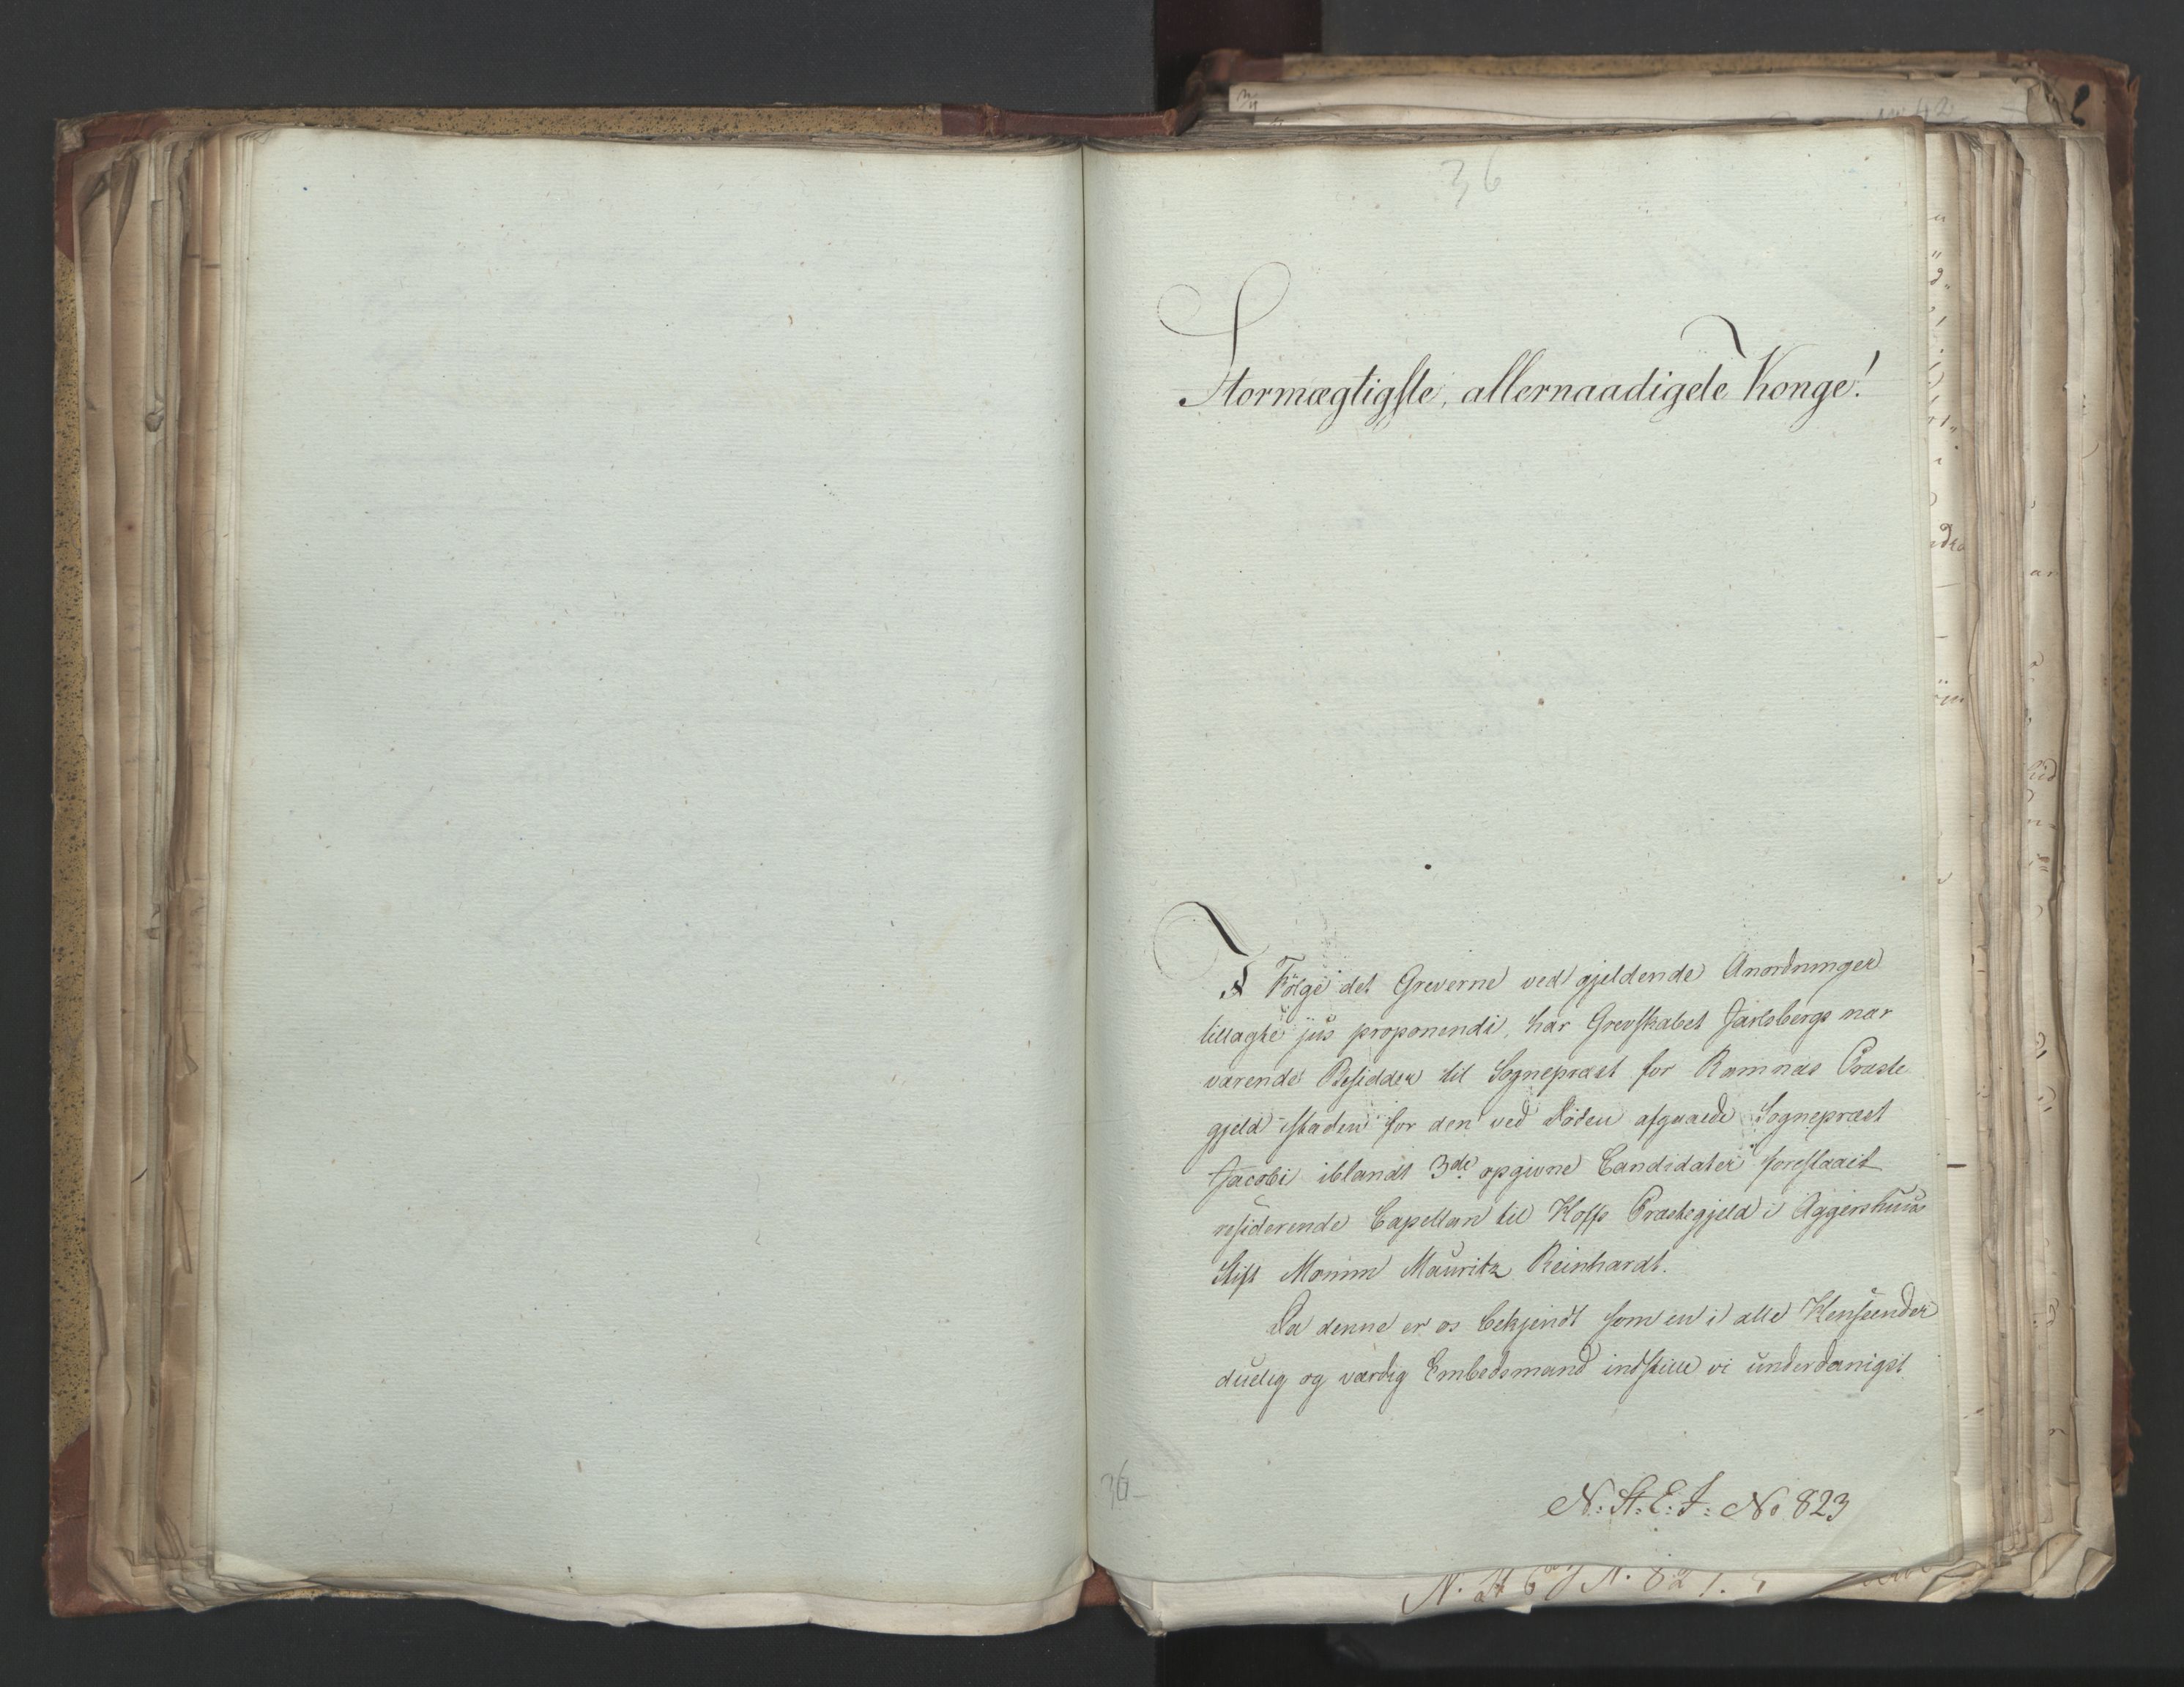 36
Stormægtigste, allernaadigste Konge!
I Følge det Greverne ved gjeldende Anordninger
tillagte jus proponendi, har Grevskabet Jarlsbergs nær
værende Besidder til Sognepræst for Ramnæs Præste
gjeld istaden for den ved Døden afgaaede Sognepræst
Jacobi iblandt 3de opgivne Candidater foreslaaet
residerende Capellan til Hoffs Præstegjeld i Aggershuus
Stift Mauritz Reinhardt.
Da denne er os bekjendt som en i alle Henseender
duelig og værdig Embedsmand indstille vi underdanigst
36
N: St: E: J: No 823